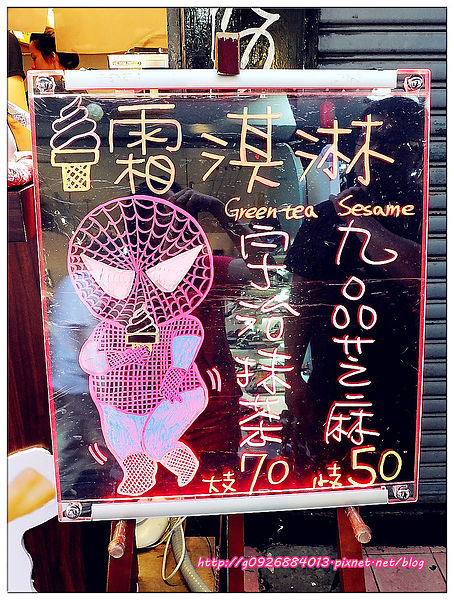 霜淇淋
Green tea Sesame
宇治抹茶
大支70
九品芝麻
小支50
http://g0926884013.pixnet.net/blog